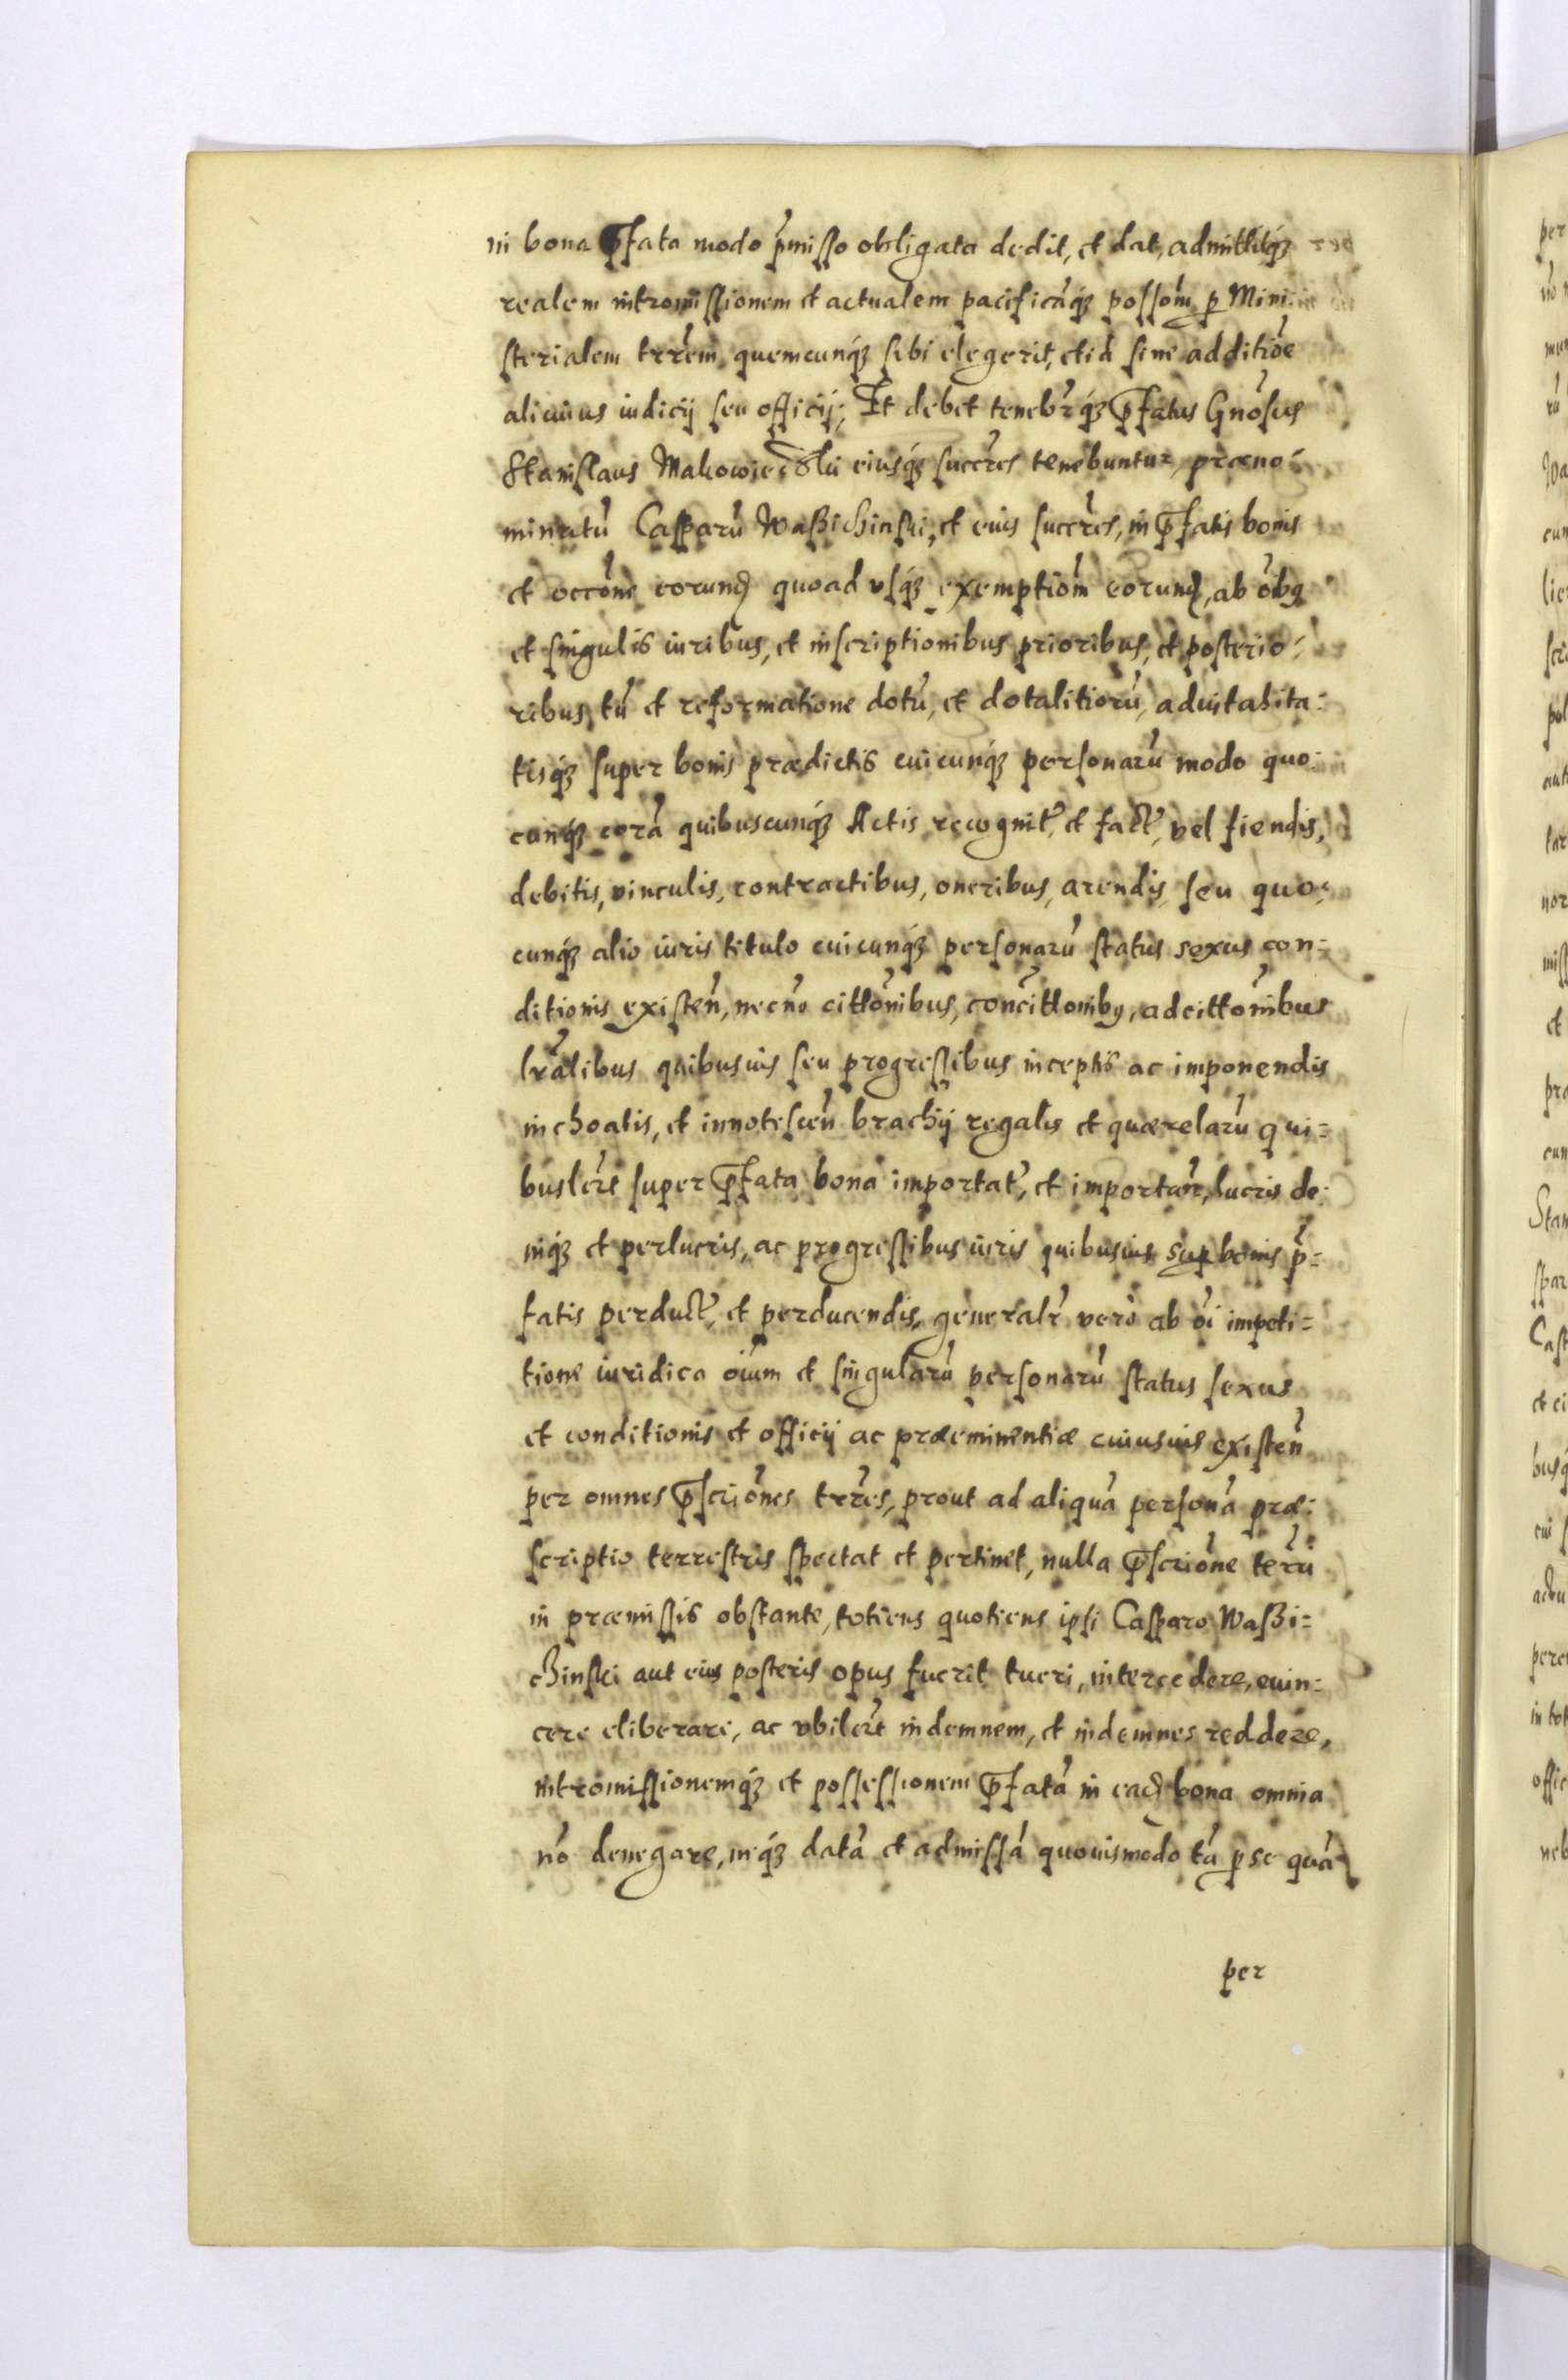 in bona p̄fata modo p̃misso obligata dedit, et dat, admittitq́ʒ
realem intromissionem et actualem pacificãq́ʒ possom̃ ꝑ Mini:
sterialem trrẽm, quemcunq́ʒ sibi elegerit, et id sine additiõe
alicuius iudicij seu officij; Et debet tenebr̃q́ʒ p̄fatus Gnõsus
Stanislaus Makowieczki eiusq́ʒ succr̃es tenebuntur, præno:
minatũ Casparũ Waßichinski, et eius succr̃es, in p̄fatis bonis
et occõne eorund quoad vsq́ʒ exemptiom̃ eorund, ab õibꝫ
et singulis iuribus, et inscriptionibus prioribus, et posterio:
ribus, tũ et reformatione dotũ, et dotalitiorũ, aduitalita:
tisq́ʒ super bonis prædictis cuicunq́ʒ personarũ modo quo:
cunq́ʒ corã quibuscunq́ʒ Actis recognit̃, et fact̃, vel fiendis,
debitis, vinculis, contractibus, oneribus, arendis, seu quo:
cunq́ʒ alio iuris titulo cuicunq́ʒ personarũ status sexus con:
ditionis existeñ, necnõ cittõnibus, concĩttonibꝫ, adcittõnibus
lrãlibus quibusuis seu progressibus inceptis ac imponendis
inchoatis, et innotesceñ brachij regalis et quærelarũ qui=
buslr̃e super p̄fata bona importat̃, et importan̄r, lucris de:
niq́ʒ et perlucris, ac progressibus iuris quibusuis sup bonis p̃=
fatis perduct̃, et perducendis, generalr̃ verò ab õi impeti=
tione iuridica õium et singularũ personarũ status sexus
et conditionis et officij ac præeminentiæ cuiusuis existeñ
per omnes p̄scriõnes trr̃es, prout ad aliquã personã præ:
scriptio terrestris spectat et pertinet, nulla p̄scriõne terrũ
in præmissis obstante, totiens quotiens ipsi Casparo Waßi=
chinski aut eius posteris opus fuerit tueri, intercedere, euin:
cere eliberare, ac vbilr̃e indemnem, et indemnes reddere,
intromissionemq́ʒ et possessionem p̄fatã in ead bona omnia
nõ denegare, neq́ʒ datã et admissã quouismodo tã ꝑ se quã
per